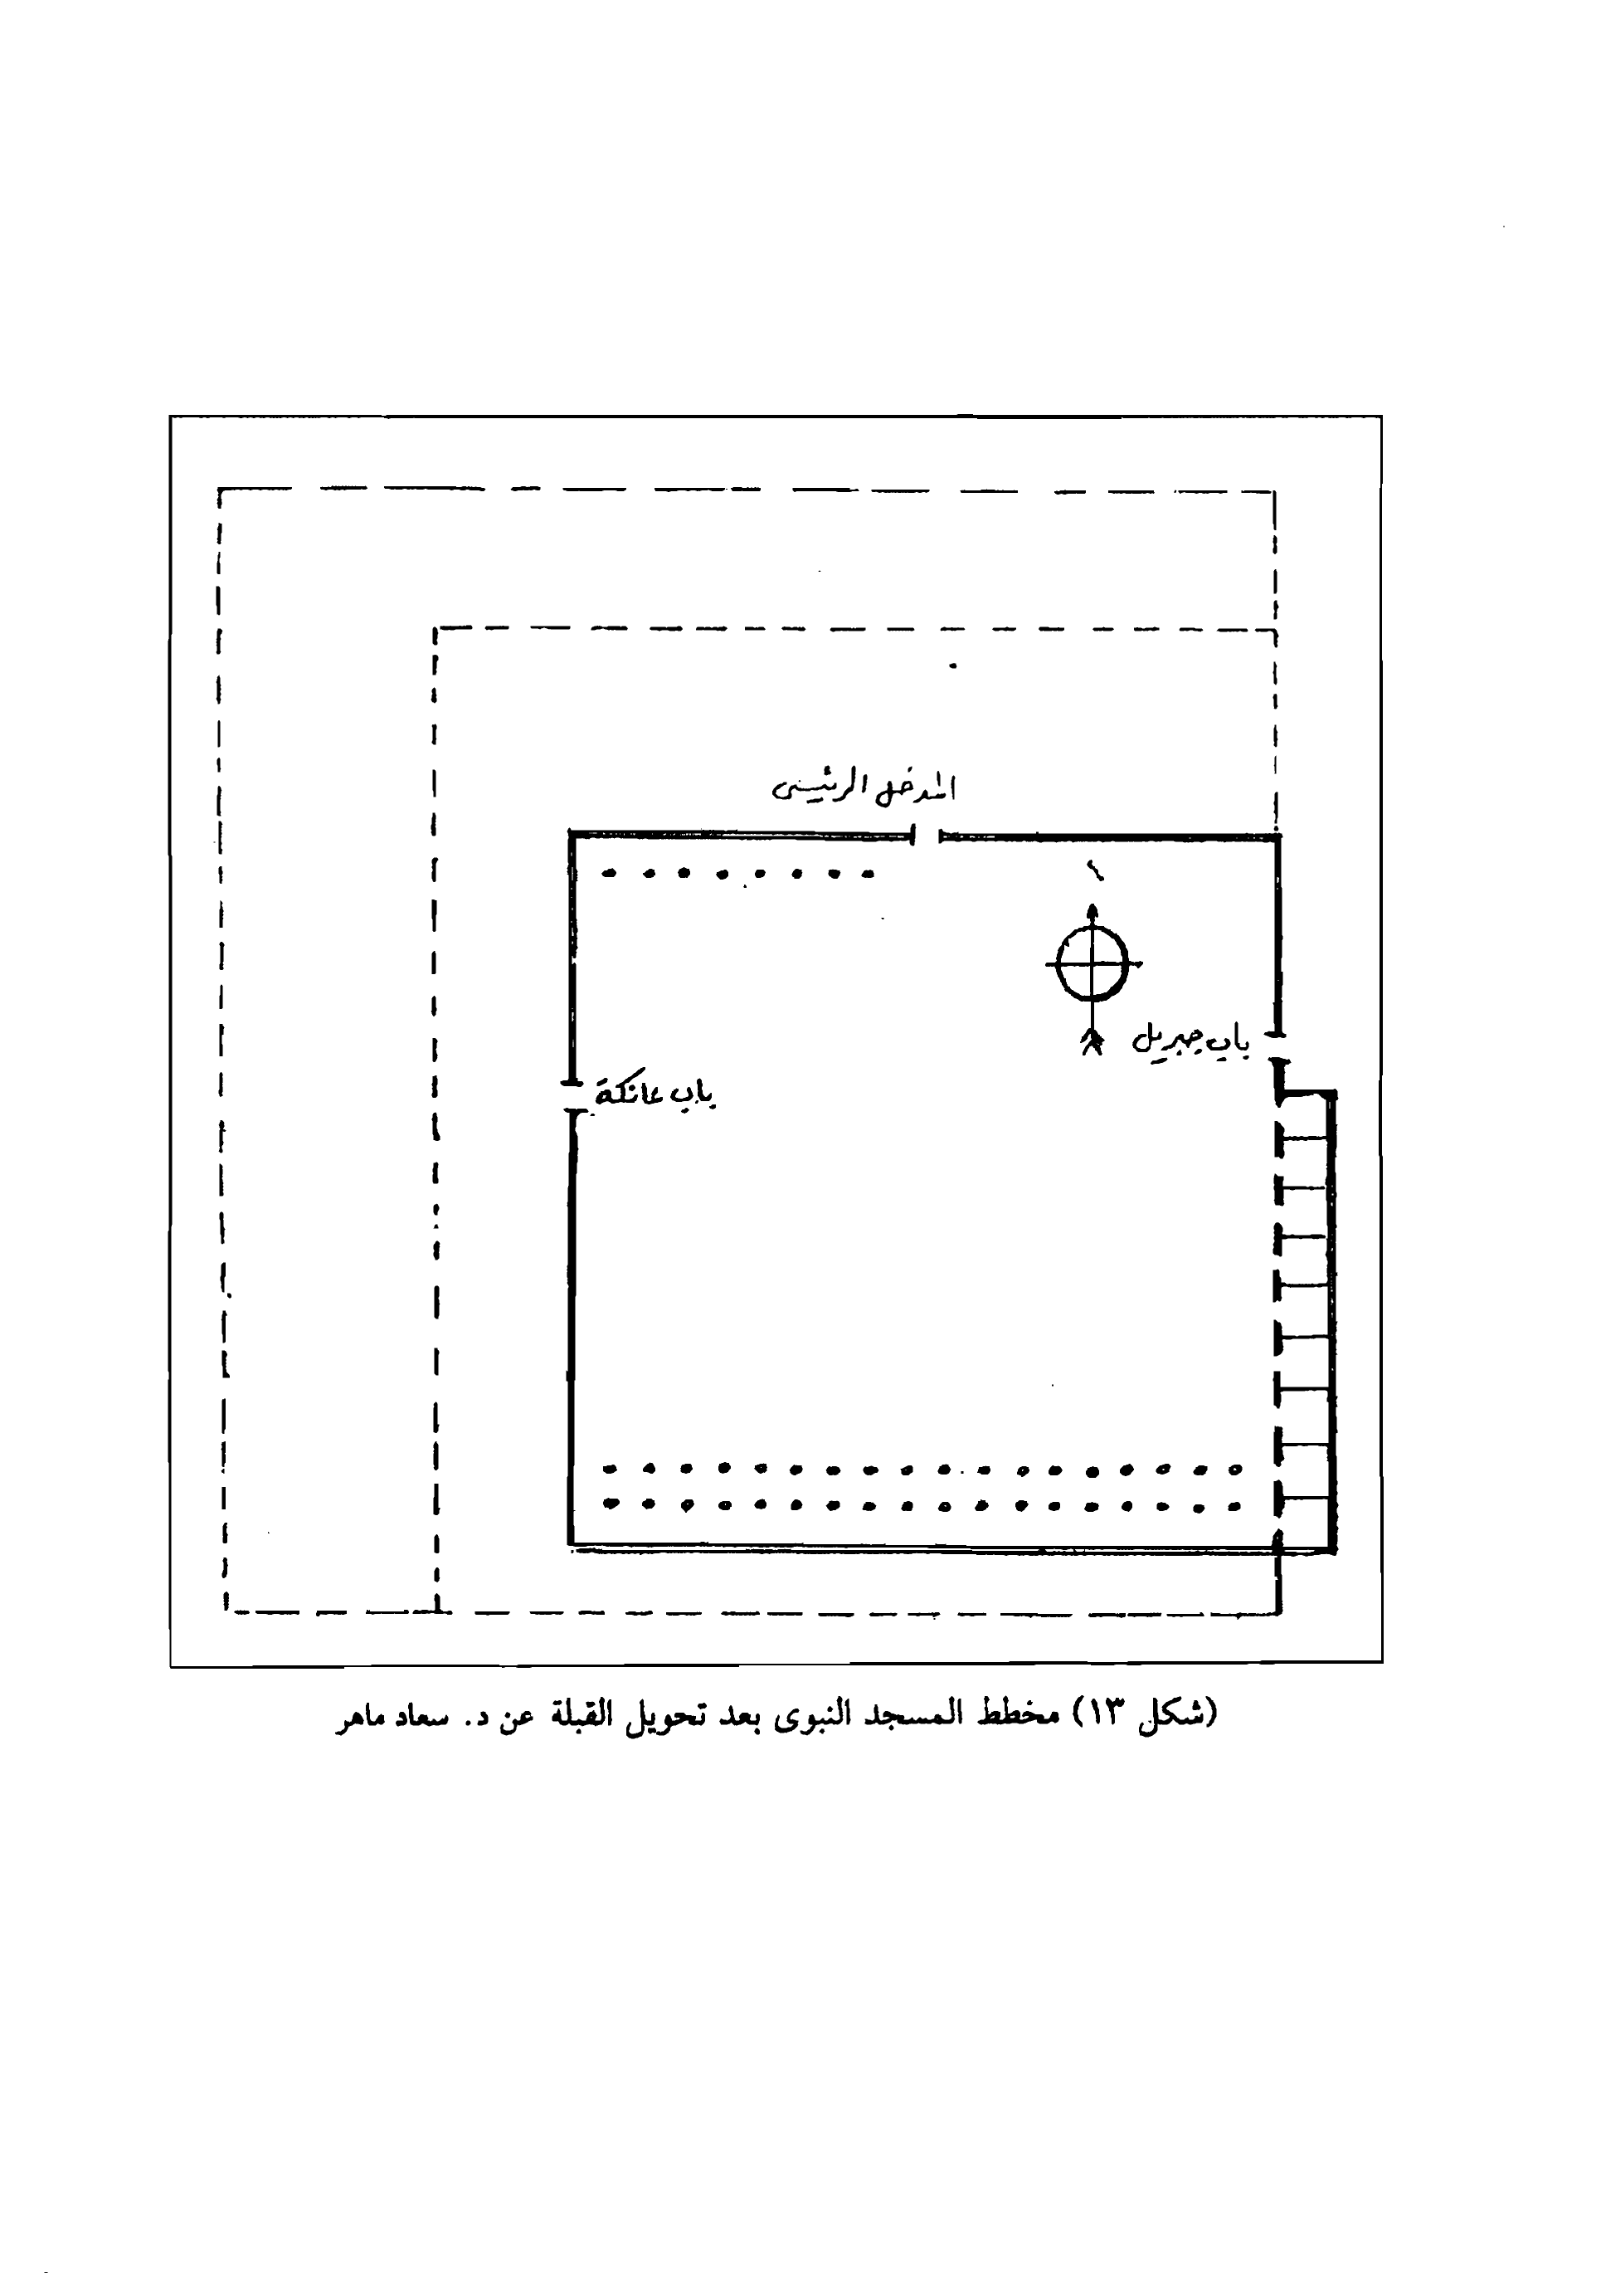 المدخل الرئيسى
باب جبريل
باب عاتكة
(شكل ١٣) مخطط المسجد النبوى بعد تحويل القبلة عن د. سعاد ماهر